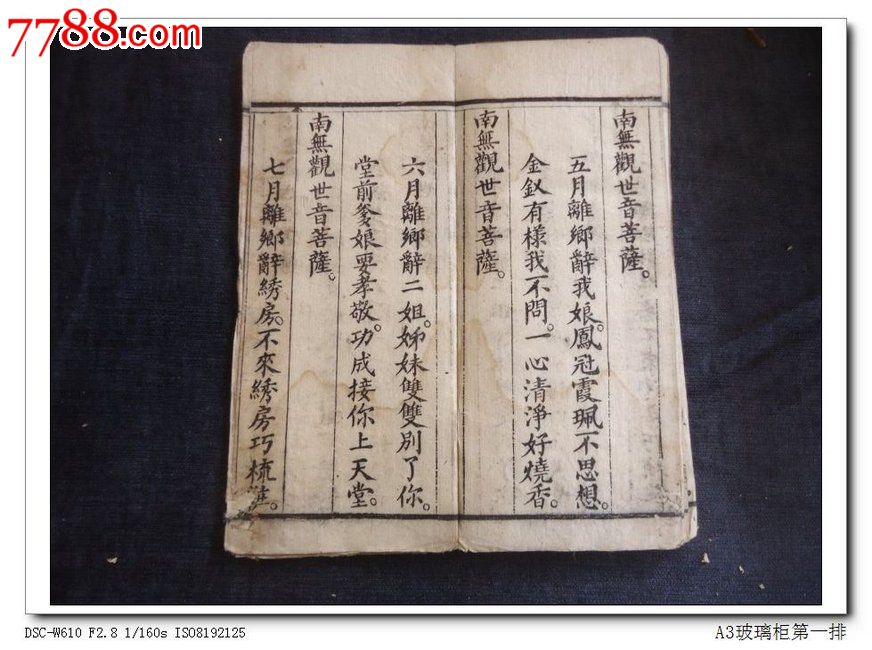 7788.com
南無觀世音菩薩。
五月離鄉辭我娘。鳳冠霞珮不思想。
金釵有樣我不問。一心清淨好燒香。
南無觀世音菩薩。
六月離鄉辭二姐。姊妹雙雙別了你。
堂前爹娘要孝敬。功成接你上天堂。
南無觀世音菩薩。
七月離鄉辭綉房。不來綉房巧梳粧。
DSC-W610 F2.8 1/160s ISO8192125
A3玻璃柜第一排